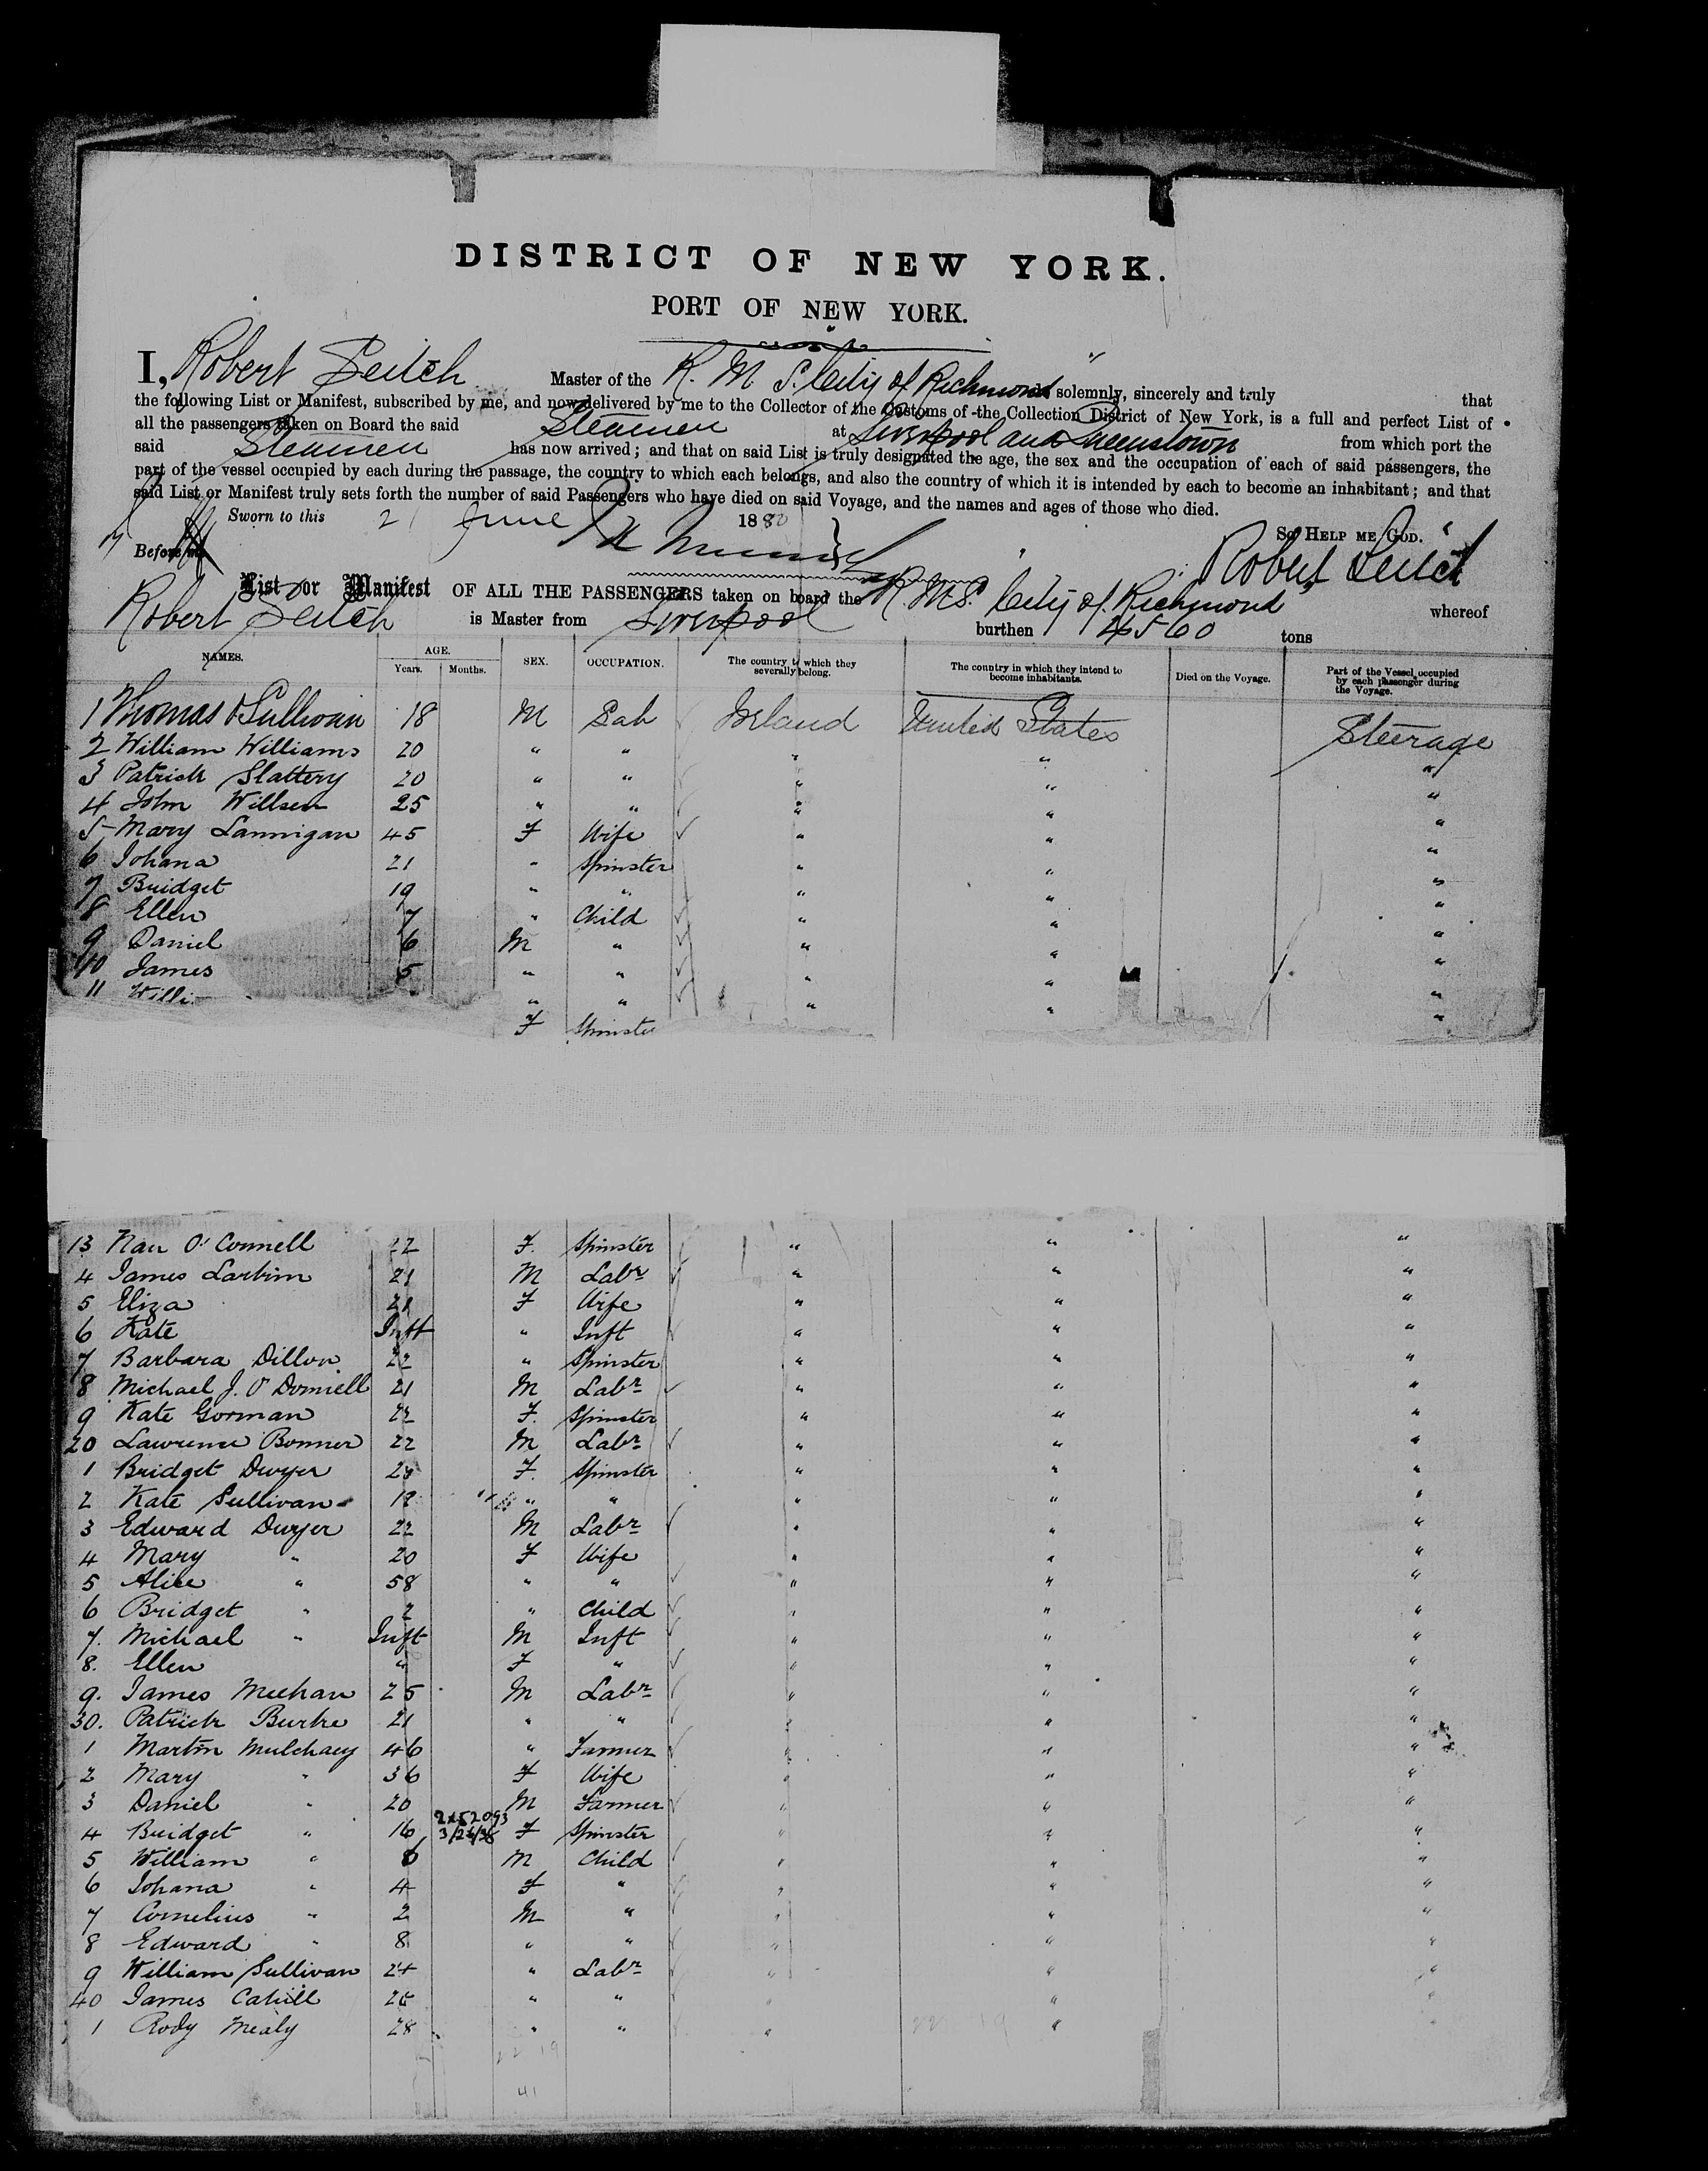 DISTRICT OF NEW YORK.
PORT OF NEW YORK.
I, Robert Leitch Master of the R. M. S. City of Richmond solemnly, sincerely and truly that
the following List or Manifest, subscribed by me, and now delivered by me to the Collector of the Customs of the Collection District of New York, is a full and perfect List of
all the passengers taken on Board the said Steamer at Liverpool and Queenstown from which port the
said Steamer has now arrived; and that on said List is truly designated the age, the sex and the occupation of each of said passengers, the
part of the vessel occupied by each during the passage, the country to which each belongs, and also the country of which it is intended by each to become an inhabitant; and that
said List or Manifest truly sets forth the number of said Passengers who have died on said Voyage, and the names and ages of those who died.
Sworn to this 21 June 1880 So HELP ME GOD.
Before me Robert Leitch
List or Manifest OF ALL THE PASSENGERS taken on board the R. M. S. City of Richmond whereof
Robert Leitch is Master from Liverpool burthen 4560 tons
NAMES. AGE. Years. Months. SEX. OCCUPATION. The country to which they severally belong. The country in which they intend to become inhabitants. Died on the Voyage. Part of the Vessel occupied by each passenger during the Voyage.
1 Thomas O'Sullivan 18 M Lab Ireland United States Steerage
2 William Williams 20 " " " " "
3 Patrick Slattery 20 " " " " "
4 John Willsen 25 " " " " "
5 Mary Lannigan 45 F Wife " " "
6 Johana 21 " Spinster " " "
7 Bridget 19 " " " " "
8 Ellen 7 " Child " " "
9 Daniel 6 M " " " "
10 James 5 " " " " "
11 Willi " " " " "
F Spinster
13 Nan O'Connell 22 F. Spinster " " "
4 James Larkin 21 M Labr " " "
5 Eliza 21 F Wife " " "
6 Kate Inft " Inft " " "
7 Barbara Dillon 22 " Spinster " " "
8 Michael J. O'Donnell 21 M Labr " " "
9 Kate Gorman 22 F. Spinster " " "
20 Lawrence Bonner 22 M Labr " " "
1 Bridget Dwyer 20 F. Spinster " " "
2 Kate Sullivan 18 " " " " "
3 Edward Dwyer 22 M Labr " " "
4 Mary " 20 F Wife " " "
5 Alice " 58 " " " " "
6 Bridget " 2 " Child " " "
7. Michael " Inft M Inft " " "
8. Ellen " F " " " "
9. James Meehan 25 M Labr " " "
30. Patrick Burke 21 " " " " "
1 Martin Mulchaey 46 " Farmer " " "
2 Mary " 36 F Wife " " "
3 Daniel " 20 M Farmer " " "
4 Bridget " 16 F Spinster " " "
5 William " 6 M Child " " "
6 Johana " 4 F " " " "
7 Cornelius " 2 M " " " "
8 Edward " 8 " " " " "
9 William Sullivan 24 " Labr " " "
40 James Cahill 25 " " " " "
1 Rody Mealy 28 " " " "
22 19
41